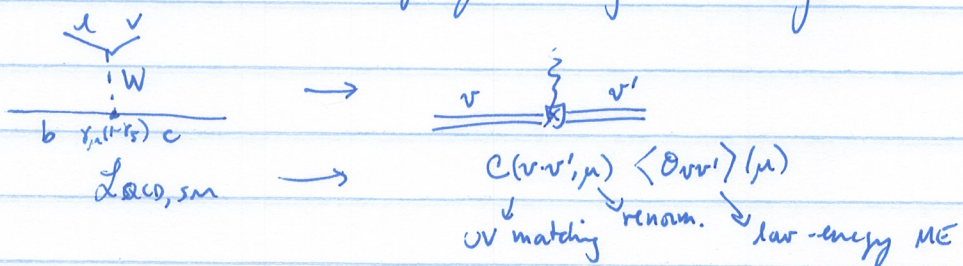 l ν
W
→
v v'
b γ_μ(1-γ_5) c
L_QCD, SM → C(v·v', μ) ⟨O_vv'⟩(μ)
UV matching renorm. low-energy ME